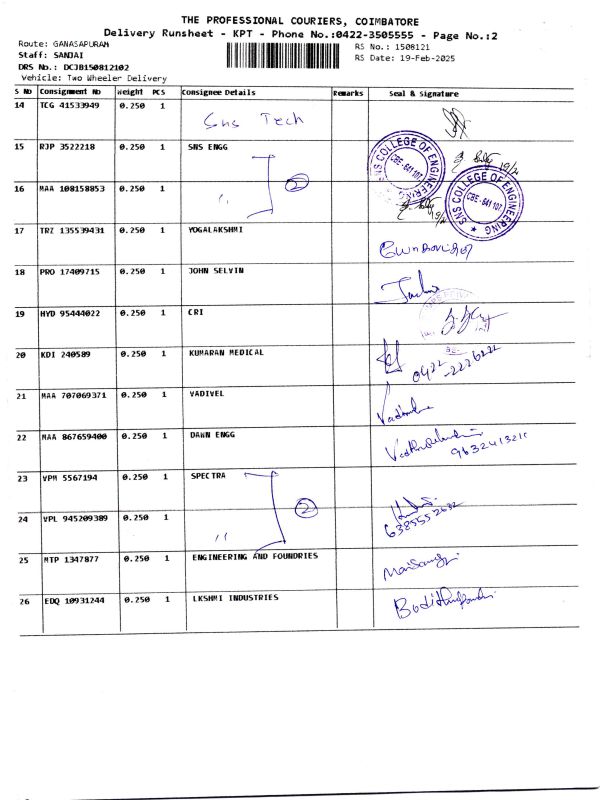 THE PROFESSIONAL COURIERS, COIMBATORE
Delivery Runsheet - KPT - Phone No.:0422-3505555 - Page No.:2
Route: GANASAPURAM
RS No.: 1508121
Staff: SANJAI
RS Date: 19-Feb-2025
DRS No.: DCJB150812102
Vehicle: Two Wheeler Delivery
S No Consignment No Weight PCS Consignee Details Remarks Seal & Signature
14 TCG 41533949 0.250 1 Sns Tech
15 RJP 3522218 0.250 1 SNS ENGG
SNS COLLEGE OF ENGINEERING
CBE-641 107.
16 MAA 108158853 0.250 1 ,, 2
SNS COLLEGE OF ENGINEERING
CBE-641 107.
17 TRZ 135539431 0.250 1 YOGALAKSHMI
18 PRO 17409715 0.250 1 JOHN SELVIN
19 HYD 95444022 0.250 1 CRI
20 KDI 240589 0.250 1 KUMARAN MEDICAL 0422-2226222
21 MAA 707069371 0.250 1 VADIVEL
22 MAA 867659400 0.250 1 DAWN ENGG
23 VPM 5567194 0.250 1 SPECTRA
24 VPL 945209389 0.250 1 ,, 2
25 MTP 1347877 0.250 1 ENGINEERING AND FOUNDRIES
26 EDQ 10931244 0.250 1 LKSHMI INDUSTRIES